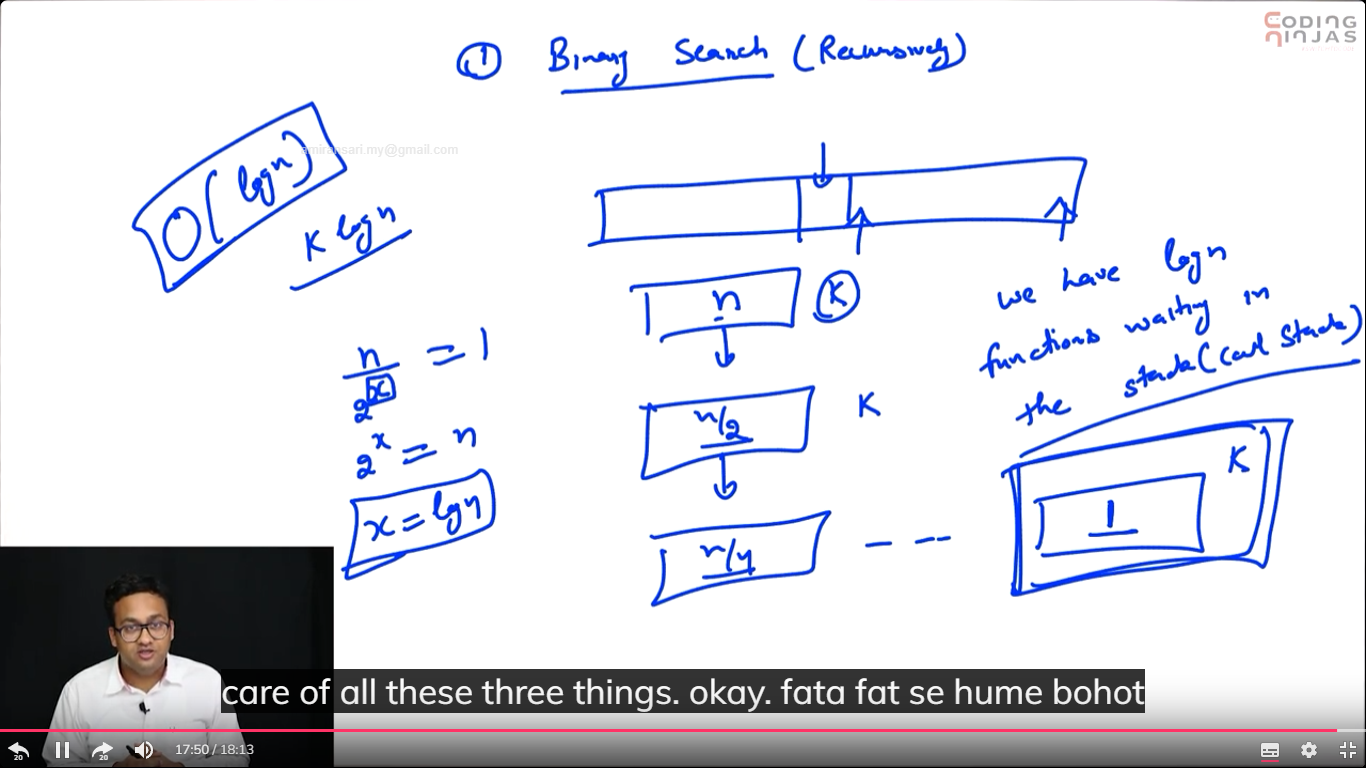 CODING
NINJAS
① Binary Search (Recursively)
amiransari.my@gmail.com
O(logn)
K logn
n/2^x = 1
2^x = n
x = logn
n
K
n/2
K
n/4
- - -
we have logn
functions waiting in
the stack (Call Stack)
K
1
care of all these three things. okay. fata fat se hume bohot
20
20
17:50 / 18:13